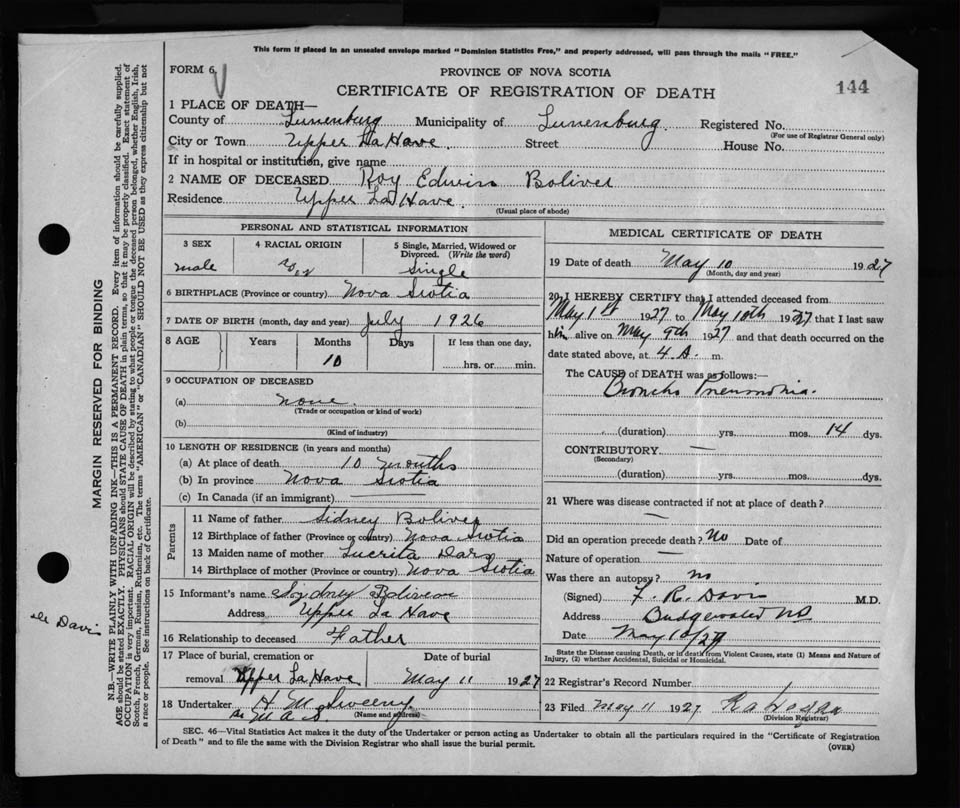 This form if placed in an unsealed envelope marked "Dominion Statistics Free," and properly addressed, will pass through the mails "FREE."
FORM 6
PROVINCE OF NOVA SCOTIA
CERTIFICATE OF REGISTRATION OF DEATH
144
1 PLACE OF DEATH—
County of Lunenburg Municipality of Lunenburg Registered No.
(For use of Registrar General only)
City or Town Upper La Have Street House No.
If in hospital or institution, give name
2 NAME OF DECEASED Roy Edwin Boliver
Residence Upper La Have
(Usual place of abode)
PERSONAL AND STATISTICAL INFORMATION
3 SEX 4 RACIAL ORIGIN 5 Single, Married, Widowed or Divorced. (Write the word)
male Single
6 BIRTHPLACE (Province or country) Nova Scotia
7 DATE OF BIRTH (month, day and year) July 1926
8 AGE Years Months Days If less than one day,
10 hrs. or min.
9 OCCUPATION OF DECEASED
(a) none
(Trade or occupation or kind of work)
(b)
(Kind of industry)
10 LENGTH OF RESIDENCE (in years and months)
(a) At place of death 10 months
(b) In province Nova Scotia
(c) In Canada (if an immigrant)
Parents
11 Name of father Sidney Boliver
12 Birthplace of father (Province or country) Nova Scotia
13 Maiden name of mother Lucrita
14 Birthplace of mother (Province or country) Nova Scotia
15 Informant's name Sydney Boliver
Address Upper La Have
16 Relationship to deceased Father
17 Place of burial, cremation or removal Upper La Have Date of burial May 11 1927
18 Undertaker H. M. Sweeny
(Name and address)
MEDICAL CERTIFICATE OF DEATH
19 Date of death May 10 1927
(Month, day and year)
20 I HEREBY CERTIFY that I attended deceased from
May 1st 1927 to May 10th 1927 that I last saw
him alive on May 9th 1927 and that death occurred on the
date stated above, at 4 A. m.
The CAUSE of DEATH was as follows:—
Broncho Pneumonia.
(duration) yrs. mos. 14 dys.
CONTRIBUTORY
(Secondary)
(duration) yrs. mos. dys.
21 Where was disease contracted if not at place of death?
Did an operation precede death? No Date of
Nature of operation
Was there an autopsy? no
(Signed) F. R. Davis M.D.
Address Bridgewater NS
Date May 10/27
State the Disease causing Death, or in death from Violent Causes, state (1) Means and Nature of
Injury, (2) whether Accidental, Suicidal or Homicidal.
22 Registrar's Record Number
23 Filed May 11 1927
(Division Registrar)
SEC. 46—Vital Statistics Act makes it the duty of the Undertaker or person acting as Undertaker to obtain all the particulars required in the "Certificate of Registration
of Death" and to file the same with the Division Registrar who shall issue the burial permit.
(OVER)
MARGIN RESERVED FOR BINDING
N.B.—WRITE PLAINLY WITH UNFADING INK—THIS IS A PERMANENT RECORD. Every item of information should be carefully supplied.
AGE should be stated EXACTLY. PHYSICIANS should STATE CAUSE OF DEATH in plain terms, so that it may be properly classified. Exact statement of
OCCUPATION is very important. RACIAL ORIGIN will be described by stating to what people or tongue the deceased person belonged, whether English, Irish,
Scotch, French, German, Russian, Ruthenian, etc. The terms "AMERICAN" or "CANADIAN" SHOULD NOT BE USED as they express citizenship but not
a race or people. See instructions on back of Certificate.
Davis